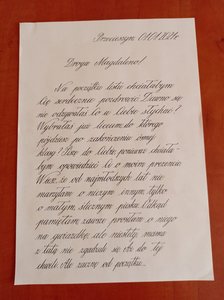 Droga Magdaleno!
Na początku listu chciałabym
Cię serdecznie pozdrowić. Dawno się
nie odzywałaś. Co u Ciebie słychać?
Wybrałaś już liceum do którego
pójdziesz po zakończeniu ósmej
klasy? Piszę do Ciebie, ponieważ chciała-
bym opowiedzieć Ci o moim prezencie.
Wiesz, że od najmłodszych lat nie
marzyłam o niczym innym, tylko
o małym, ślicznym piesku. Odkąd
pamiętam zawsze prosiłam o niego
na gwiazdkę, ale niestety mama
z tatą nie zgadzali się. Aż do tej
chwili. Ale zacznę od początku...